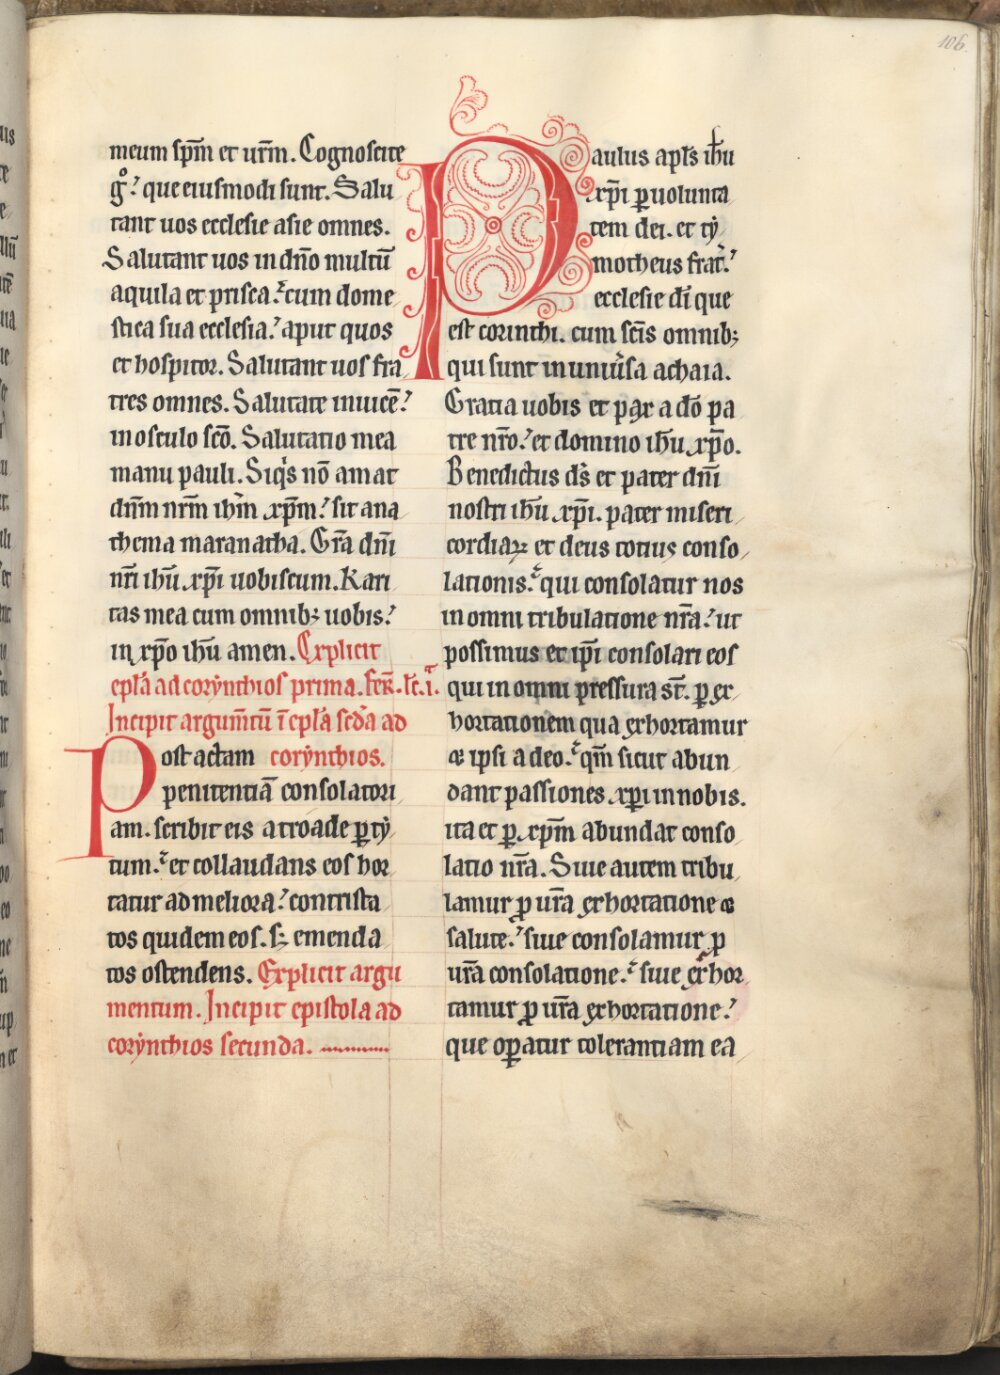 106.
meum sp̄m et ur̄m. Cognoscite
gͦ? que eiusmodi sunt. Salu
tant uos ecclesie asie omnes.
Salutant uos in dn̄o multū
aquila et prisca? cum dome
stica sua ecclesia? aput quos
et hospitor. Salutant uos fra
tres omnes. Salutate inuicē?
in osculo sc̄o. Salutatio mea
manu pauli. Siqͥs nō amat
dn̄m nr̄m ihm̄ xp̄m? sit ana
thema maranatha. Gr̄a dn̄i
nr̄i ihū xp̄i uobiscum. Kari
tas mea cum omnibꝫ uobis?
in xp̄o ihū amen. Explicit
epl̄a ad corẏnthios prima.
Incipit argum̄tū ī epl̄a scd̄a ad
Post actam corẏnthios.
penitentiā consolatori
am. scribit eis a troade ꝑ tẏ
tum? et collaudans eos hor
tatur ad meliora? contrista
tos quidem eos. sꝫ emenda
tos ostendens. Explicit argu
mentum. Incipit epistola ad
corẏnthios secunda.
Paulus apl̄s ihū
xp̄i ꝑ uolunta
tem dei. et tẏ
motheus frat̄?
ecclesie dī que
est corinthi. cum sc̄is omnibꝫ
qui sunt in uniu̓sa achaia.
Gratia uobis et pax a dō pa
tre nr̄o? et domino ihū xp̄o.
Benedictus ds̄ et pater dn̄i
nostri ihū xp̄i. pater miseri
cordiaꝝ et deus totius conso
lationis? qui consolatur nos
in omni tribulatione nr̄a? ut
possimus et ip̄i consolari eos
qui in omni pressura st̄. ꝑ ex
hortationem qua exhortamur
et ipsi a deo? qm̄ sicut abun
dant passiones xp̄i in nobis.
ita et ꝑ xp̄m abundat conso
latio nr̄a. Siue autem tribu
lamur ꝓ ur̄a exhortatione et
salute? siue consolamur ꝓ
ur̄a consolatione? siue exhor
tamur ꝓ ur̄a exhortatione?
que oꝑatur tolerantiam ea